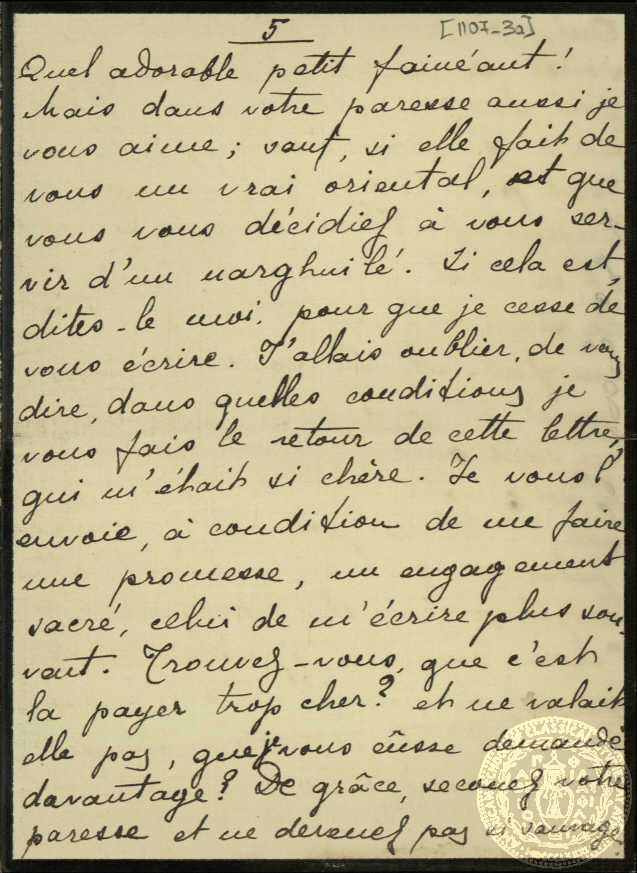 5
[1107-3a]
Quel adorable petit fainéant!
Mais dans votre paresse aussi je
vous aime; sauf, si elle fait de
vous un vrai oriental, et que
vous vous décidiez à vous ser-
vir d'un narghuilé. Si cela est,
dites-le moi, pour que je cesse de
vous écrire. J'allais oublier, de vous
dire, dans quelles conditions je
vous fais le retour de cette lettre,
qui m'était si chère. Je vous l'
envoie, à condition de me faire
une promesse, un engagement
sacré, celui de m'écrire plus sou-
vent. Trouvez-vous, que c'est
la payer trop cher? et ne valait
elle pas, que je vous eûsse demandé
davantage? De grâce, secouez votre
paresse et ne devenez pas si sauvage.